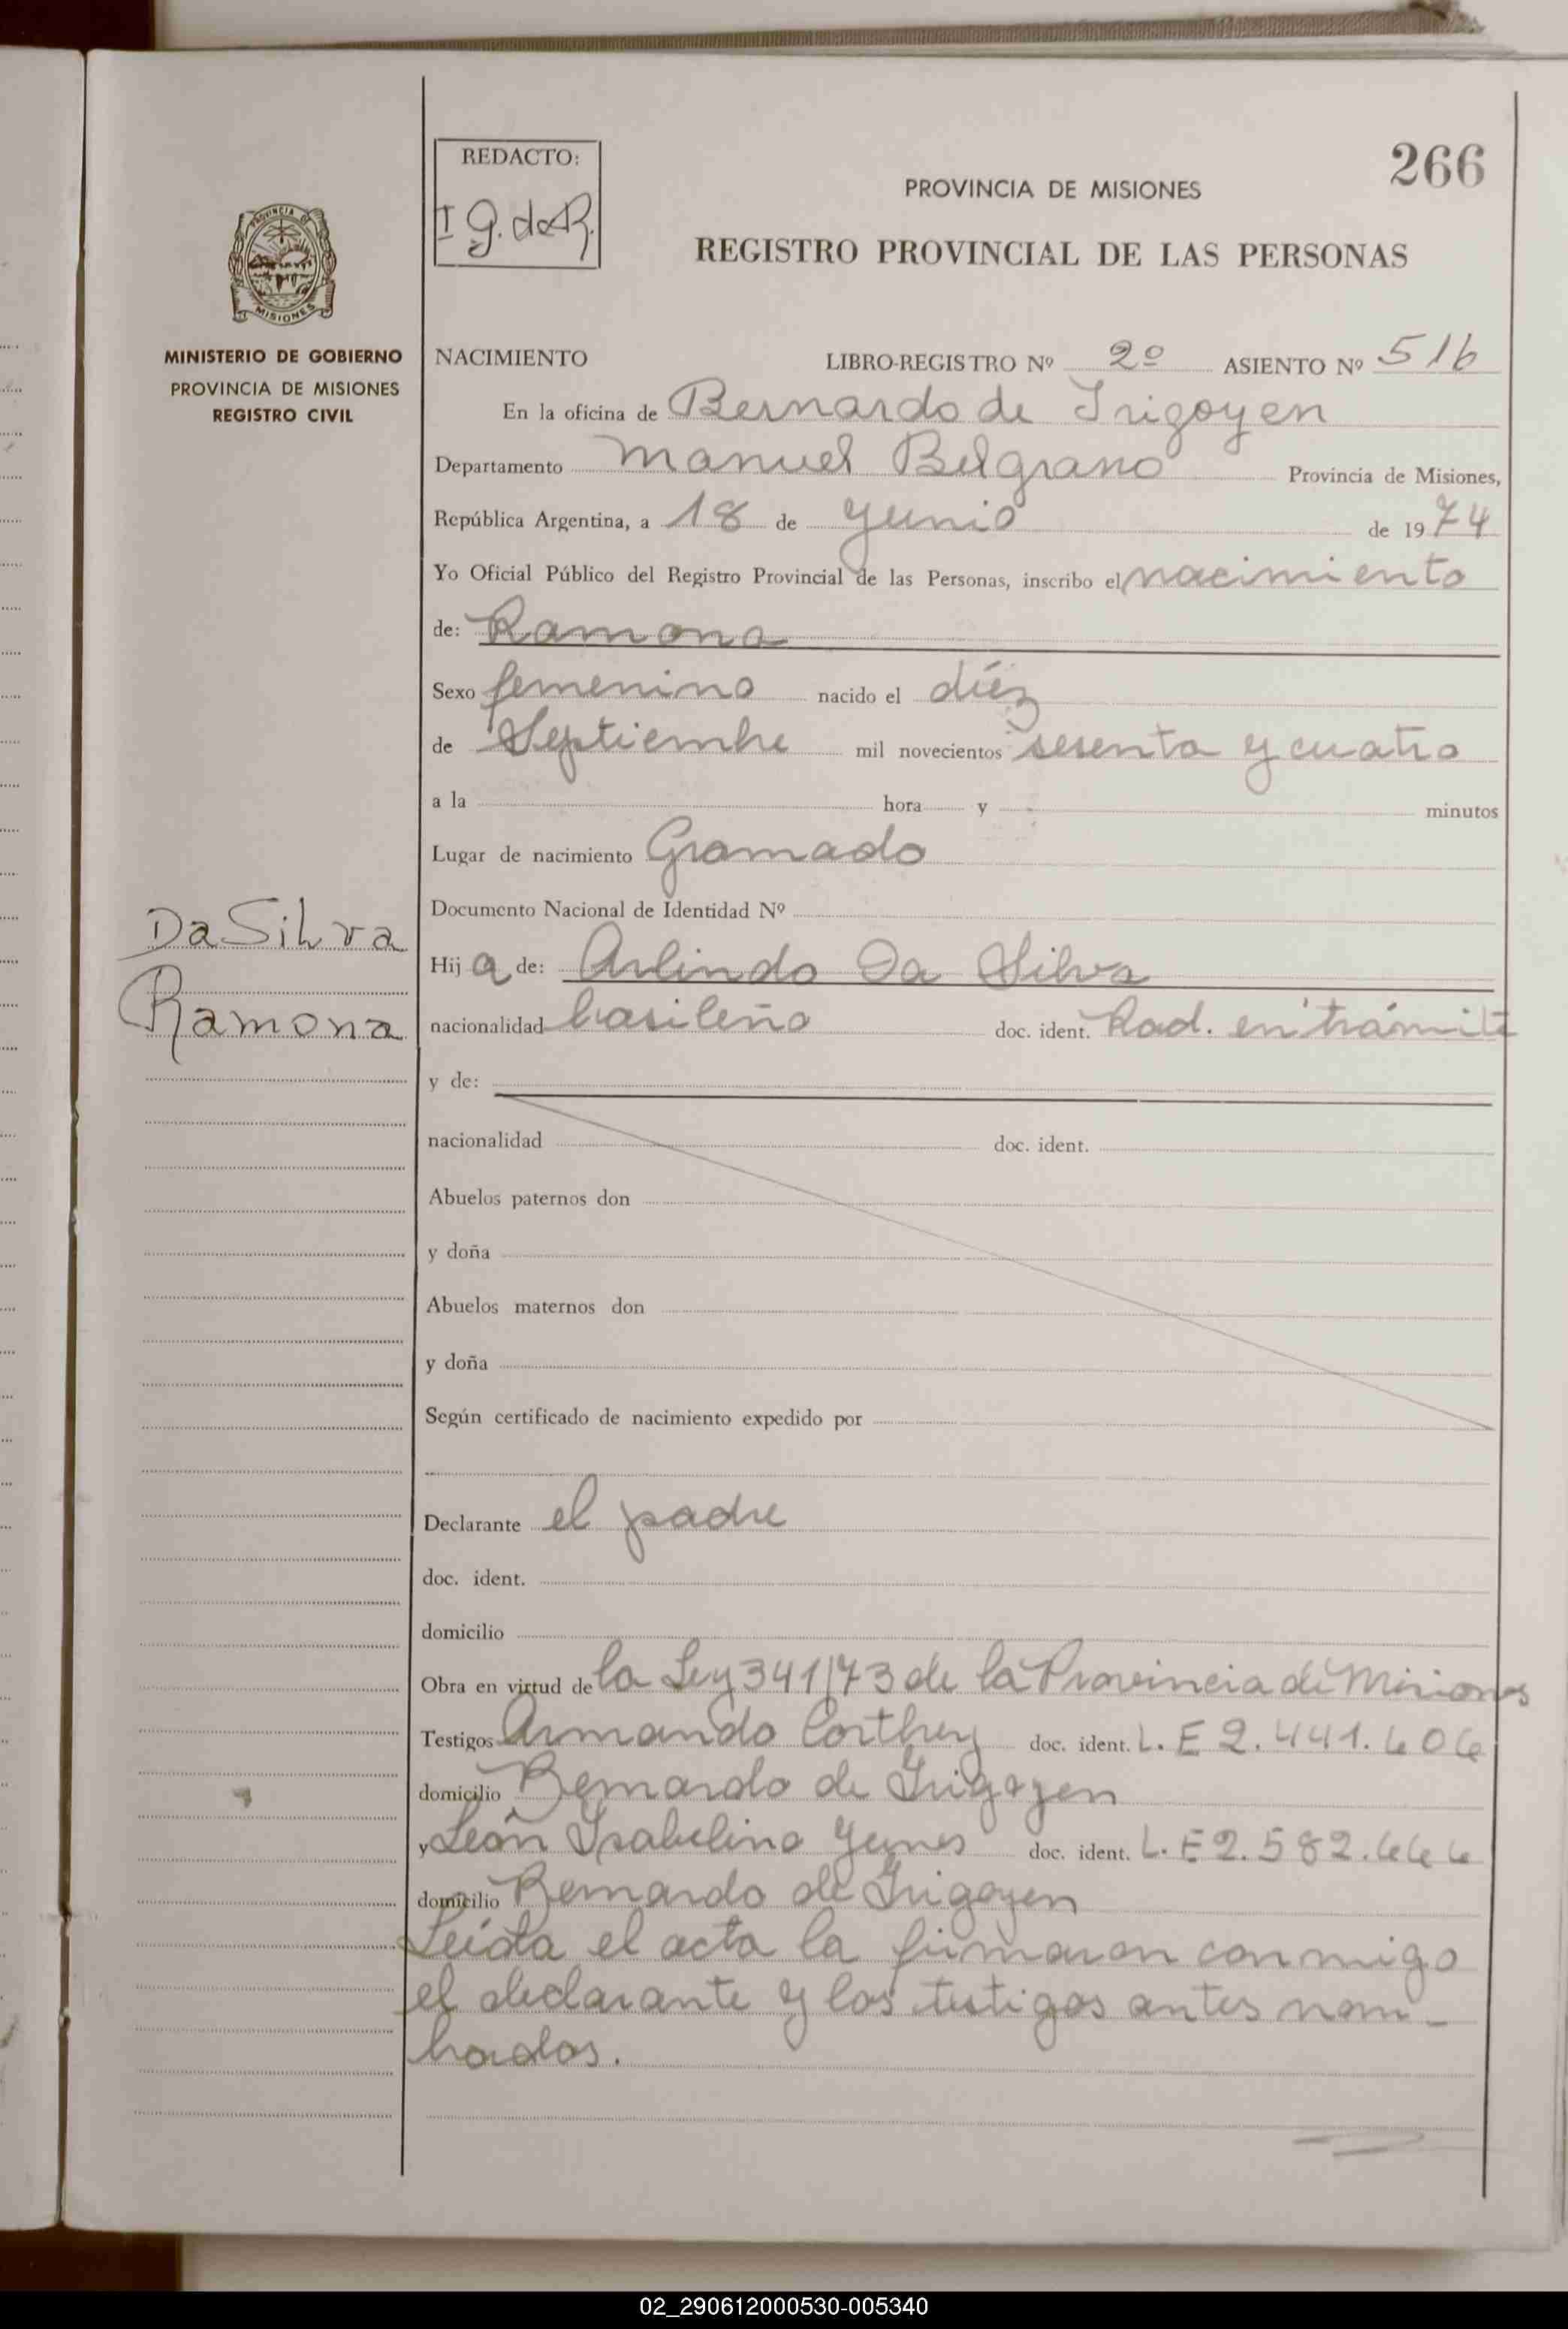 266
REDACTO:
I g. de R.
PROVINCIA DE MISIONES
REGISTRO PROVINCIAL DE LAS PERSONAS
PROVINCIA DE
MISIONES
MINISTERIO DE GOBIERNO
PROVINCIA DE MISIONES
REGISTRO CIVIL
Da Silva
Ramona
NACIMIENTO LIBRO-REGISTRO Nº 2º ASIENTO Nº 516
En la oficina de Bernardo de Irigoyen
Departamento Manuel Belgrano Provincia de Misiones,
República Argentina, a 18 de Junio de 1974
Yo Oficial Público del Registro Provincial de las Personas, inscribo el nacimiento
de: Ramona
Sexo femenino nacido el diéz
de Septiembre mil novecientos sesenta y cuatro
a la hora y minutos
Lugar de nacimiento Gramado
Documento Nacional de Identidad Nº
Hija de: Arlindo Da Silva
nacionalidad brasileño doc. ident. Rad. en trámite
y de:
nacionalidad doc. ident.
Abuelos paternos don
y doña
Abuelos maternos don
y doña
Según certificado de nacimiento expedido por
Declarante el padre
doc. ident.
domicilio
Obra en virtud de la Ley 341/73 de la Provincia de Misiones
Testigos Armando Corthey doc. ident. L. E 2.441.606
domicilio Bernardo de Irigoyen
y León Isabelino Yunes doc. ident. L. E 2.582.666
domicilio Bernardo de Irigoyen
Leída el acta la firmaron conmigo
el declarante y los testigos antes nom-
brados.
02_290612000530-005340